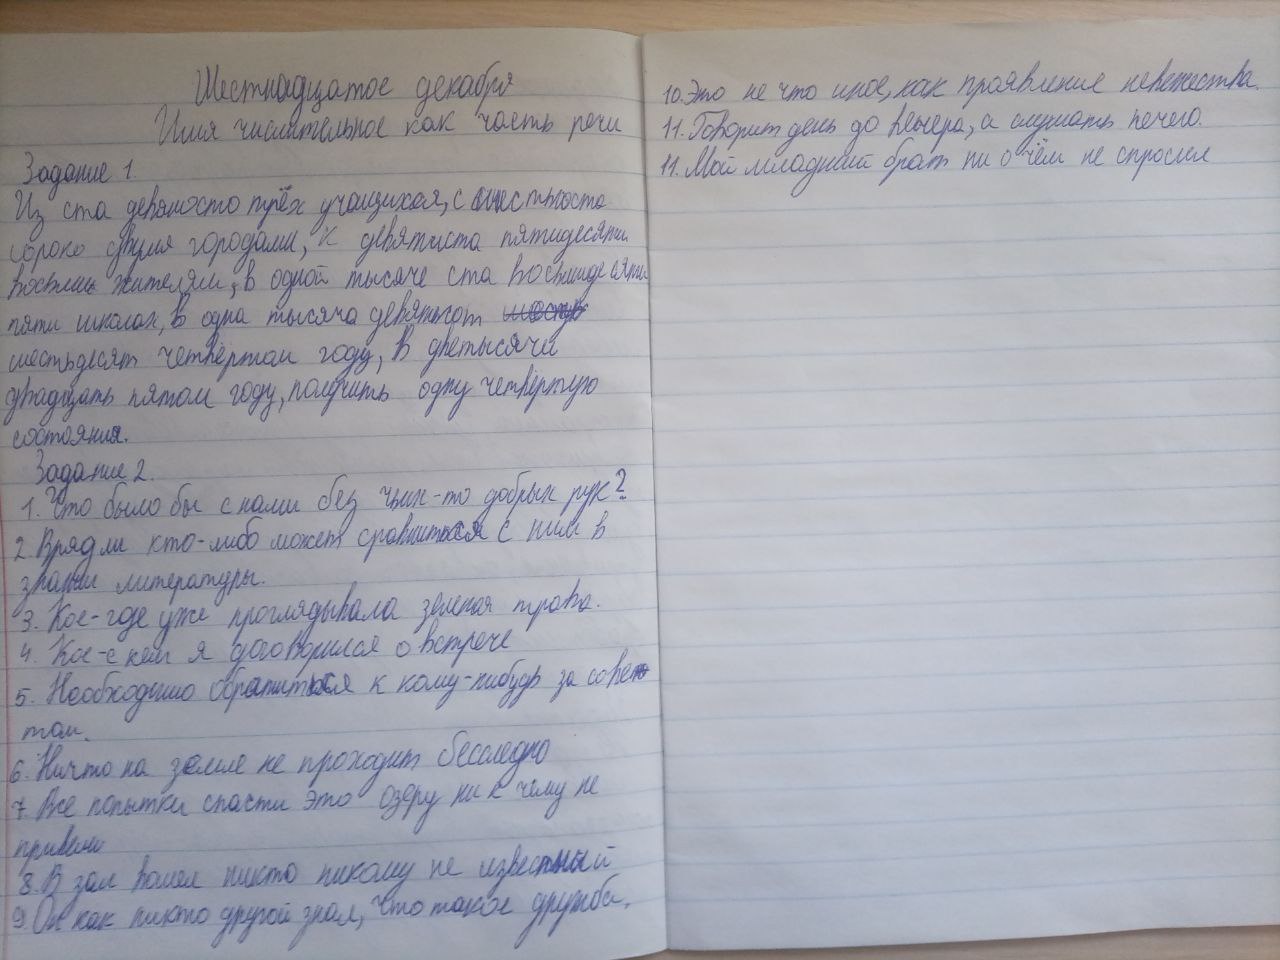 Шестнадцатое декабря
Имя числительное как часть речи
Задание 1.
Из ста девяносто трёх учащихся, с шестьюста
сорока двумя городами, к девятиста пятидесяти
восьми жителям, в одной тысяче ста восьмидесяти
пяти школах, в одна тысяча девятьсот
шестьдесят четвёртом году, в две тысячи
двадцать пятом году, получить одну четвёртую
состояния.
Задание 2.
1. Что было бы с нами без чьих-то добрых рук?
2. Врядли кто-либо может сравниться с ним в
знании литературы.
3. Кое-где уже проглядывала зелёная трава.
4. Кое-с кем я договорился о встрече
5. Необходимо обратиться к кому-нибудь за сове
том.
6. Ничто на земле не проходит бесследно
7. Все попытки спасти это озеру ни к чему не
привели
8. В зал вошел никто никому не известный
9. Он как никто другой знал, что такое дружба.
10. Это не что иное, как проявление невежества.
11. Говорит день до вечера, а слушать нечего.
11. Мой младший брат ни о чём не спросил